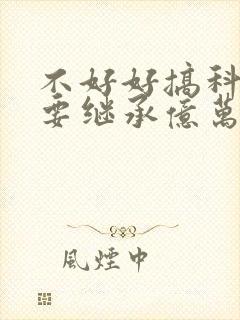 不好好搞科
要继承億萬
風煙中